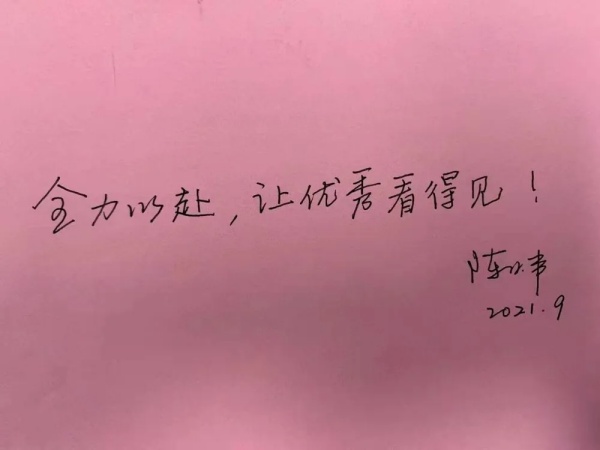 全力以赴，让优秀看得见！
陈
2021.9